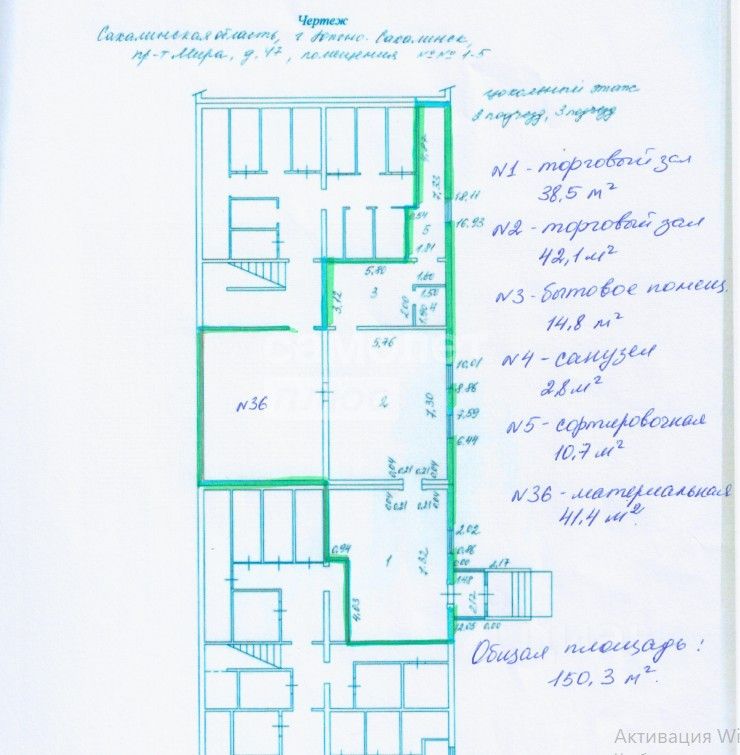 Чертеж
Сахалинская область, г. Южно-Сахалинск,
пр-т Мира, д. 47, помещения №№ 1-5
цокольный этаж
2 подъезд, 3 подъезд
N1 - торговый зал
38,5 м²
N2 - торговый зал
42,1 м²
N3 - бытовое помещ.
14,8 м²
N4 - санузел
2,8 м²
N5 - сортировочная
10,7 м²
N36 - материальная
41,4 м²
Общая площадь:
150,3 м².
7,33
18,11
0,54
16,93
5
1,81
5,80
1,60
3,12
3
2,00
1,50
1,90
4
5,76
10,01
8,86
N36
2
7,30
7,59
6,44
0,04
0,21
0,21
0,04
0,04
0,21
0,21
0,04
2,02
0,94
1
7,32
0,86
0,00
2,17
1,48
4,03
2,12
12,05
0,00
Активация Wi